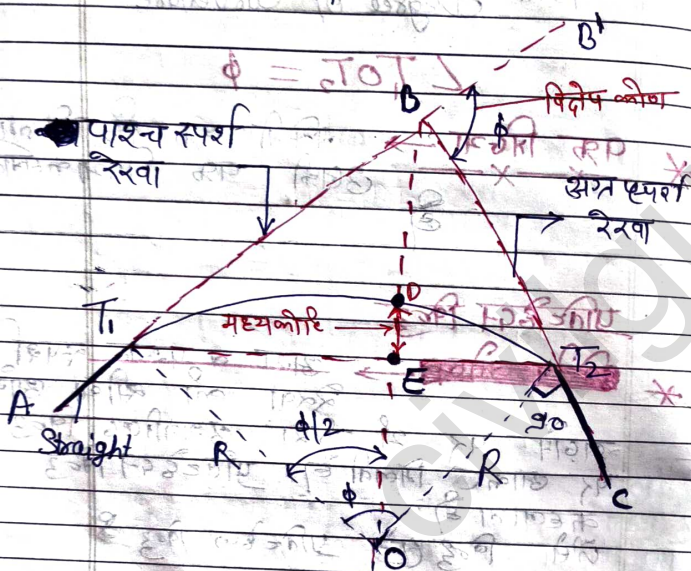 B'
B
विक्षेप कोण
ϕ
पाश्च स्पर्श
रेखा
अग्र स्पर्श
रेखा
T₁
D
मध्यकोटि
E
T₂
A
Straight
ϕ/2
90
R
R
C
ϕ
O
civilgu